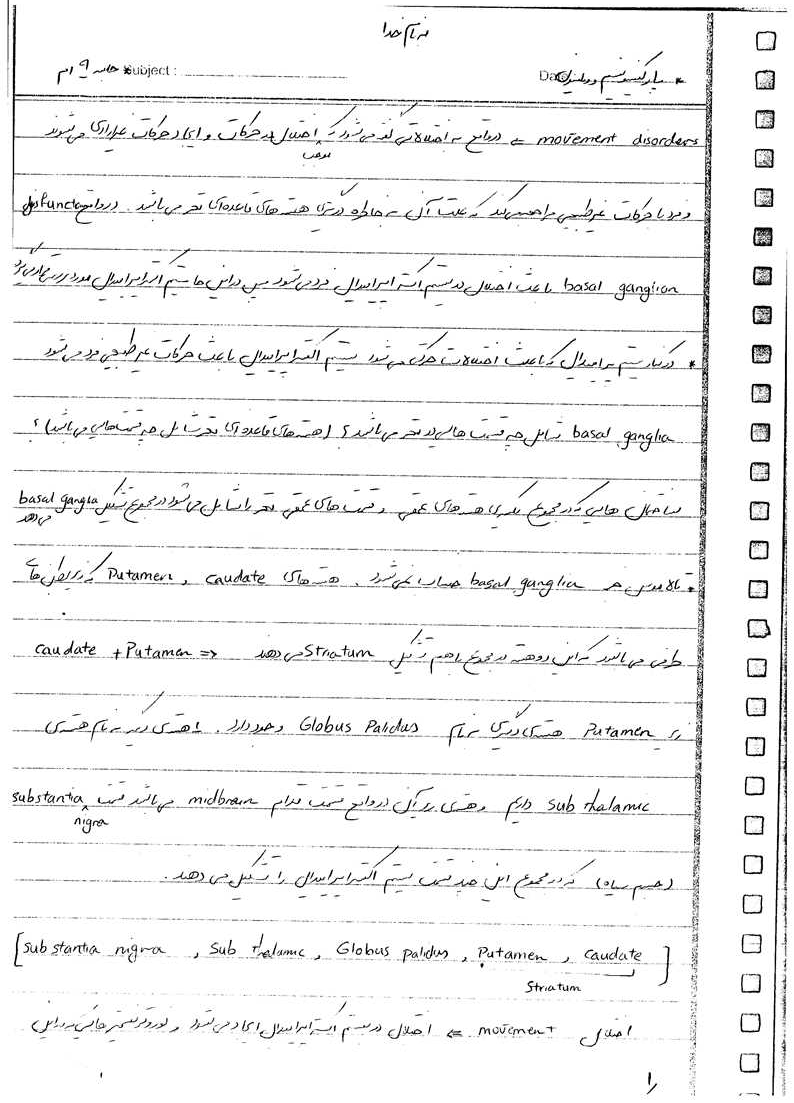 به نام خدا
* پارکینسونیسم و ویلسون Date
Subject : جلسه 9 ام
movement disorders ⇐ در واقع به اختلالاتی گفته می‌شود که موجب اختلال در حرکات و ایجاد حرکات غیر ارادی می‌شوند
و فرد با حرکات غیر طبیعی مراجعه می‌کند که علت آن به خاطر درگیری هسته های قاعده‌ای مغز می باشد . در واقع dysfunction
basal ganglion باعث اختلال در سیستم اکستراپیرامیدال فرد می‌شود پس در این جا سیستم اکستراپیرامیدال مورد بررسی قرار می‌گیرد
* در کنار سیستم پیرامیدال که باعث اختلالات حرکتی می شود سیستم اکستراپیرامیدال باعث حرکات غیر طبیعی فرد می شود
basal ganglia شامل چه قسمت هایی در مغز می باشد ؟ (هسته های قاعده ای مغز شامل چه قسمت‌هایی می باشد) ؟
ساختمان هایی که در مجموع یکسری هسته های عمقی و قسمت های عمقی مغز را شامل می شود در مجموع تشکیل basal ganglia می‌دهد
* تالاموس جز basal ganglia حساب نمی‌شود . هسته های caudate و Putamen که زیر بطن های
طرفی می باشد که این دو هسته در مجموع با هم تشکیل Striatum می دهند caudate + Putamen =>
زیر Putamen هسته‌ی دیگری به نام Globus Palidus وجود دارد . هسته‌ی دیگر به نام هسته‌ی
sub thalamic داریم و هسته‌ی بعد آن در واقع قسمت قدام midbrain می باشد قسمت substantia nigra
(جسم سیاه) که در مجموع این چند قسمت سیستم اکستراپیرامیدال را تشکیل می دهد .
[substantia nigra , Sub thalamic , Globus palidus , Putamen , caudate]
Striatum
اختلال movement ⇐ اختلال در سیستم اکستراپیرامیدال ایجاد می شود و نوروترنسمیترهایی که در این
1